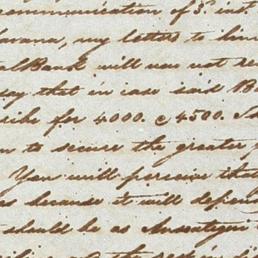 communication of 3d inst
avana, my letters to him
al Bank will now not re
say that in case said B
ribe for 4000. @ 4500.
n to secure the greater p
You will perceive that
as because it will depen
should be as Ansotegui